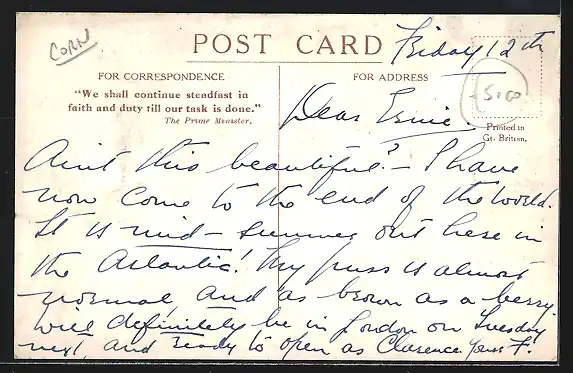 CORN
POST CARD
Friday 12th
FOR CORRESPONDENCE
FOR ADDRESS
"We shall continue steadfast in
faith and duty till our task is done."
The Prime Minister.
5.00
Printed in
Gt. Britain.
Dear Ernie
Ain't this beautiful? – I have
now come to the end of the world.
It is mid-summer out here in
the Atlantic! My puss is almost
normal, and as brown as a berry.
Will definitely be in London on Tuesday
next, and ready to open as Clarence. Yours F.